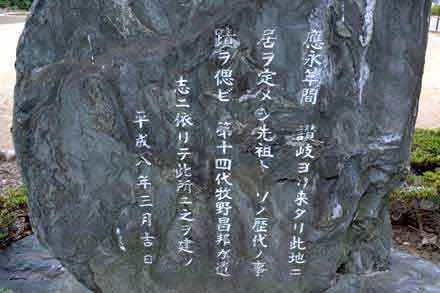 應永年間 讃岐ヨリ来タリ此地ニ
居ヲ定メシ先祖ト ソノ歴代ノ事
蹟ヲ偲ビ 第十四代牧野昌邦ガ遺
志ニ依リテ此所ニ之ヲ建ツ
平成八年三月吉日